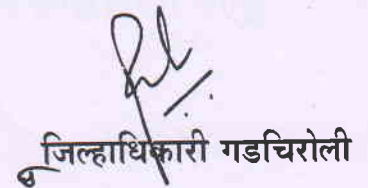 जिल्हाधिकारी गडचिरोली